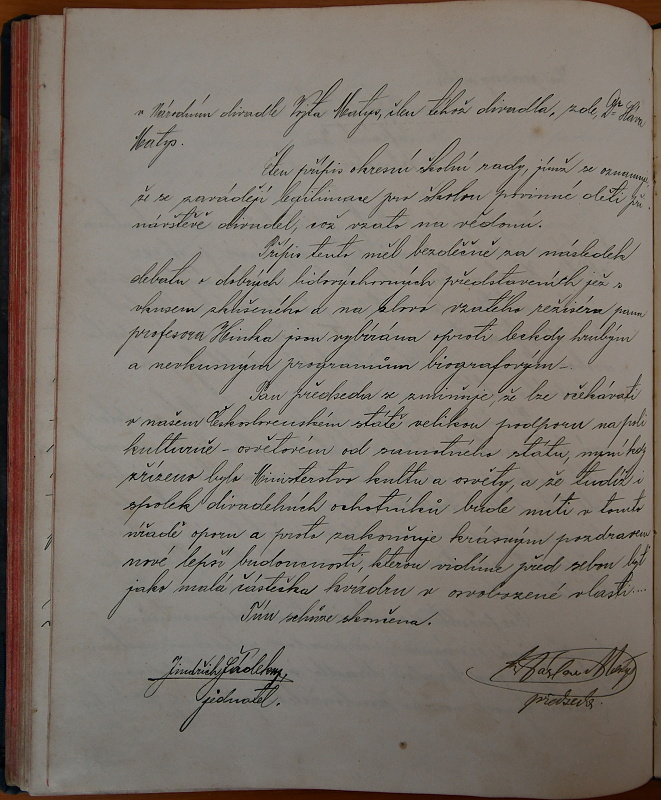 v Národním divadle Vojta Matys, člen téhož divadla, zde, Dr Sláva
Matys.
Čten přípis okresní školní rady, jímž se oznamuje,
že se zavádějí legitimace pro školou povinné děti při
návštěvě divadel, což vzato na vědomí.
Přípis tento měl bezděčně za následek
debatu o dobrých lidovýchovných představeních jež s
vkusem zkušeného a na slovo vzatého režiséra pana
profesora Hinka jsou vybírána oproti leckdy hrubým
a nevkusným programům biografovým.
Pan předseda se zmiňuje, že lze očekávati
v našem Československém státě velikou podporu na poli
kulturně-osvětovém od samotného státu, nyní kdy
zřízeno bylo Ministerstvo kultu a osvěty, a že tudíž i
spolek divadelních ochotníků bude míti v tomto
úřadě oporu a proto zakončuje krásným pozdravem
nové lepší budoucnosti, kterou vidíme před sebou byť
jako malá částečka kvádru v osvobozené vlasti....
Tím schůze skončena.
Jindřich
jednatel.
předseda.